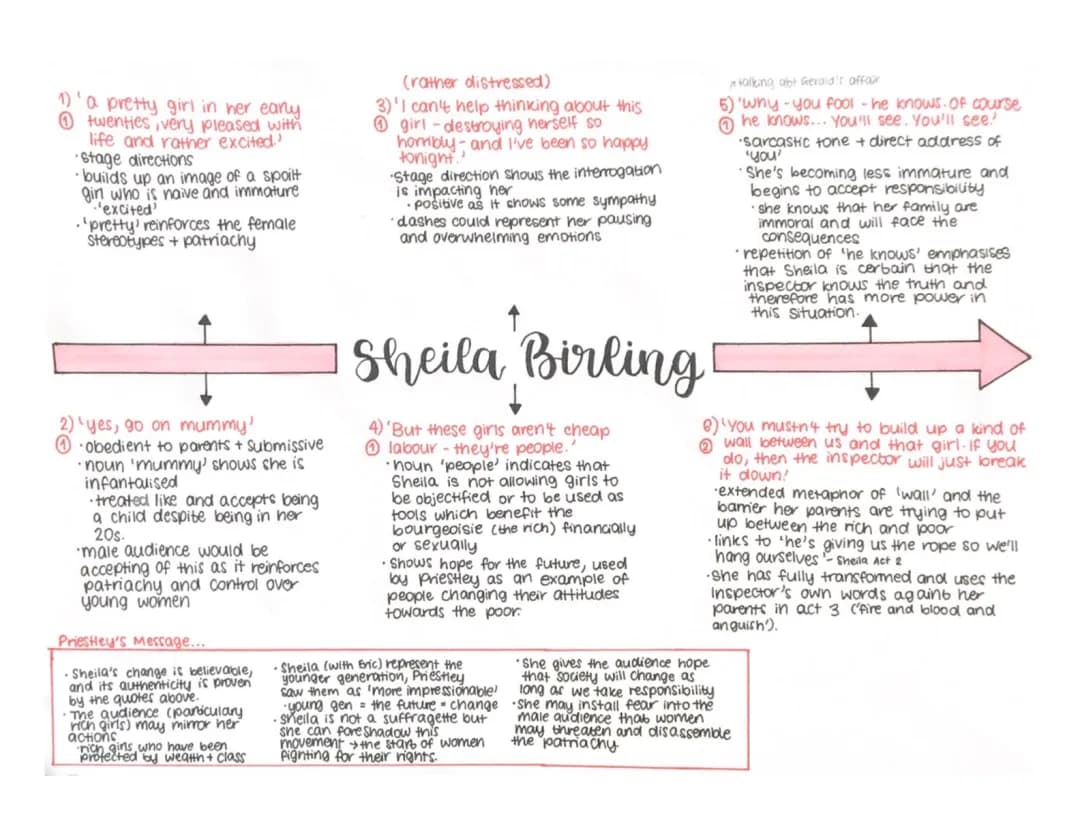 1) 'a pretty girl in her early
① twenties, very pleased with
life and rather excited.'
· stage directions
· builds up an image of a spoilt
girl who is naive and immature
· 'excited'
· 'pretty' reinforces the female
stereotypes + patriachy
(rather distressed)
3) 'I can't help thinking about this
① girl - destroying herself so
horribly - and I've been so happy
tonight.'
· stage direction shows the interrogation
is impacting her
· positive as it shows some sympathy
· dashes could represent her pausing
and overwhelming emotions
* talking abt Gerald's affair
5) 'Why - you fool - he knows. Of course
① he knows... You'll see. You'll see.'
· sarcastic tone + direct address of
'you'
· She's becoming less immature and
begins to accept responsibility
· she knows that her family are
immoral and will face the
consequences
· repetition of 'he knows' emphasises
that Sheila is certain that the
inspector knows the truth and
therefore has more power in
this situation.
Sheila Birling
2) 'yes, go on mummy'
① · obedient to parents + submissive
· noun 'mummy' shows she is
infantalised
· treated like and accepts being
a child despite being in her
20s.
· male audience would be
accepting of this as it reinforces
patriachy and control over
young women
4) 'But these girls aren't cheap
① labour - they're people.'
· noun 'people' indicates that
Sheila is not allowing girls to
be objectified or to be used as
tools which benefit the
bourgeoisie (the rich) financially
or sexually
· Shows hope for the future, used
by Priestley as an example of
people changing their attitudes
towards the poor.
6) 'You mustn't try to build up a kind of
② wall between us and that girl. If you
do, then the inspector will just break
it down.'
· extended metaphor of 'wall' and the
barrier her parents are trying to put
up between the rich and poor
· links to 'he's giving us the rope so we'll
hang ourselves' - Sheila Act 2
· She has fully transformed and uses the
Inspector's own words against her
parents in act 3 ('fire and blood and
anguish').
Priestley's Message...
· Sheila's change is believable,
and its authenticity is proven
by the quotes above.
· The audience (particulary
rich girls) may mirror her
actions
· rich girls who have been
protected by wealth + class
· Sheila (with Eric) represent the
younger generation, Priestley
saw them as 'more impressionable'
· young gen = the future = change
· sheila is not a suffragette but
she can foreshadow this
movement → the start of women
fighting for their rights.
· She gives the audience hope
that society will change as
long as we take responsibility
· She may install fear into the
male audience that women
may threaten and disassemble
the patriachy.